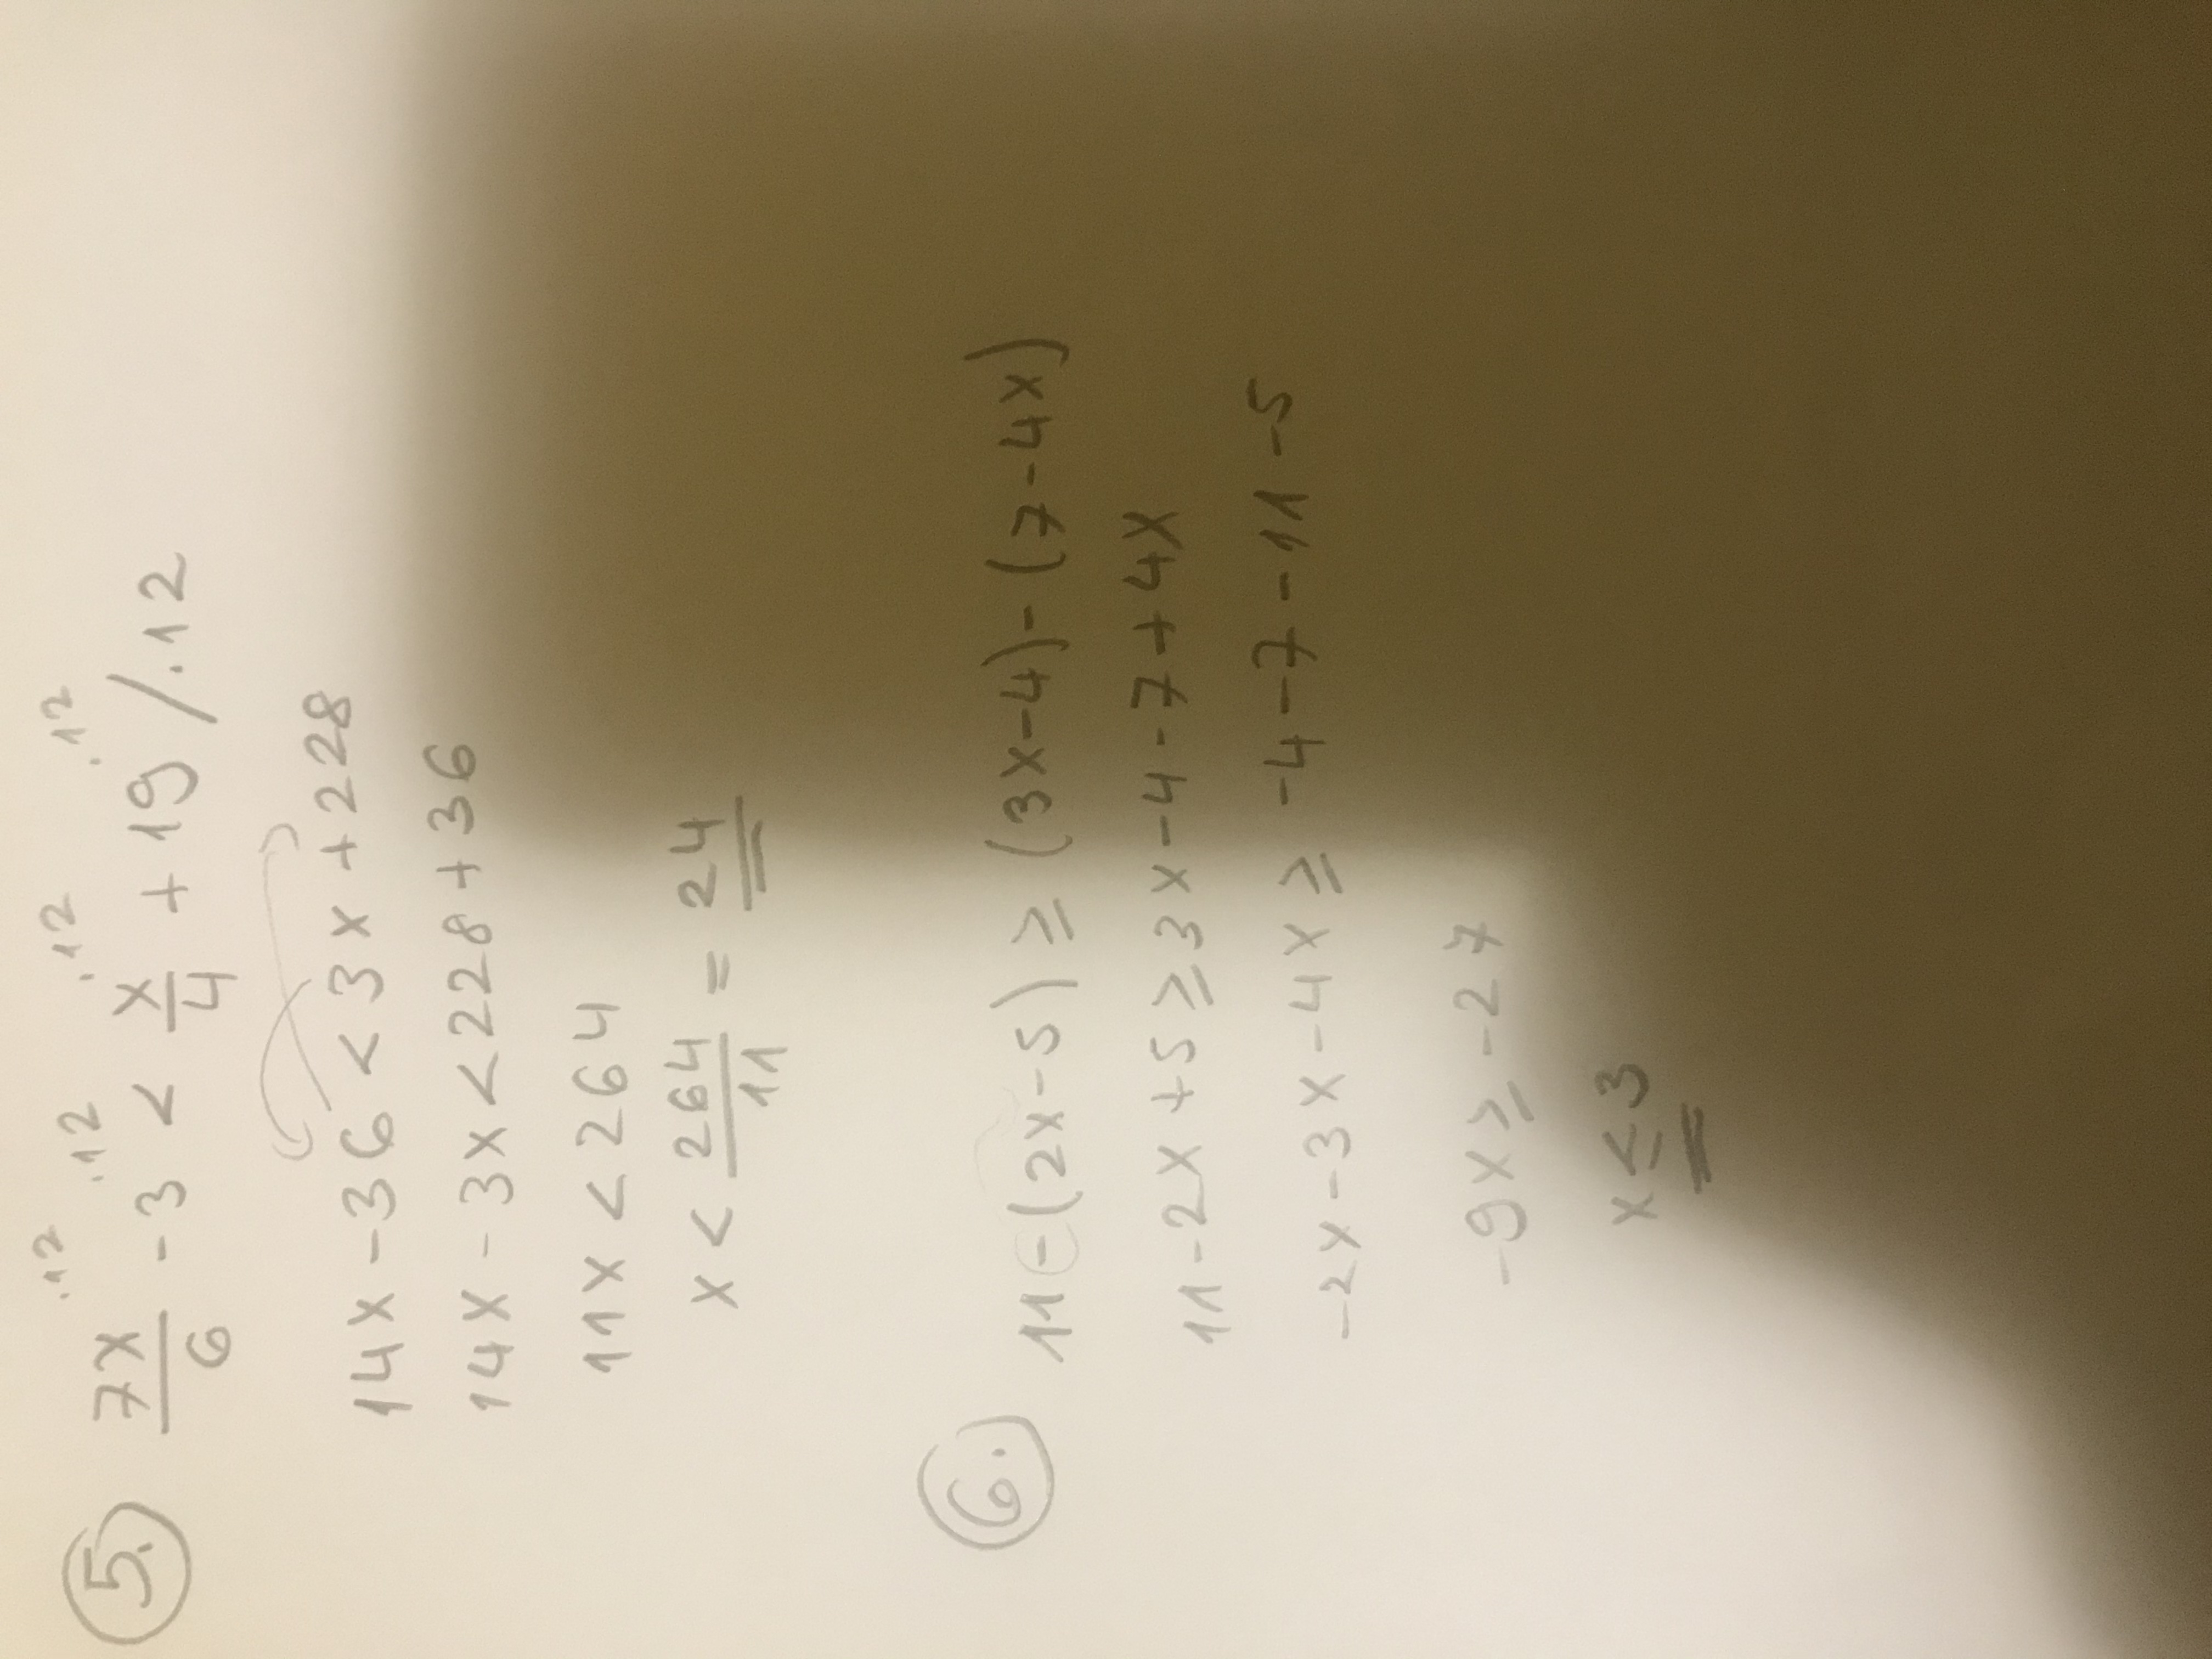 5.
.12 .12 .12 .12
7x/6 - 3 < x/4 + 19 /.12
14x - 36 < 3x + 228
14x - 3x < 228 + 36
11x < 264
x < 264/11 = 24
6.
11 - (2x - 5) ≥ (3x - 4) - (7 - 4x)
11 - 2x + 5 ≥ 3x - 4 - 7 + 4x
-2x - 3x - 4x ≥ -4 - 7 - 11 - 5
-9x ≥ -27
x ≤ 3